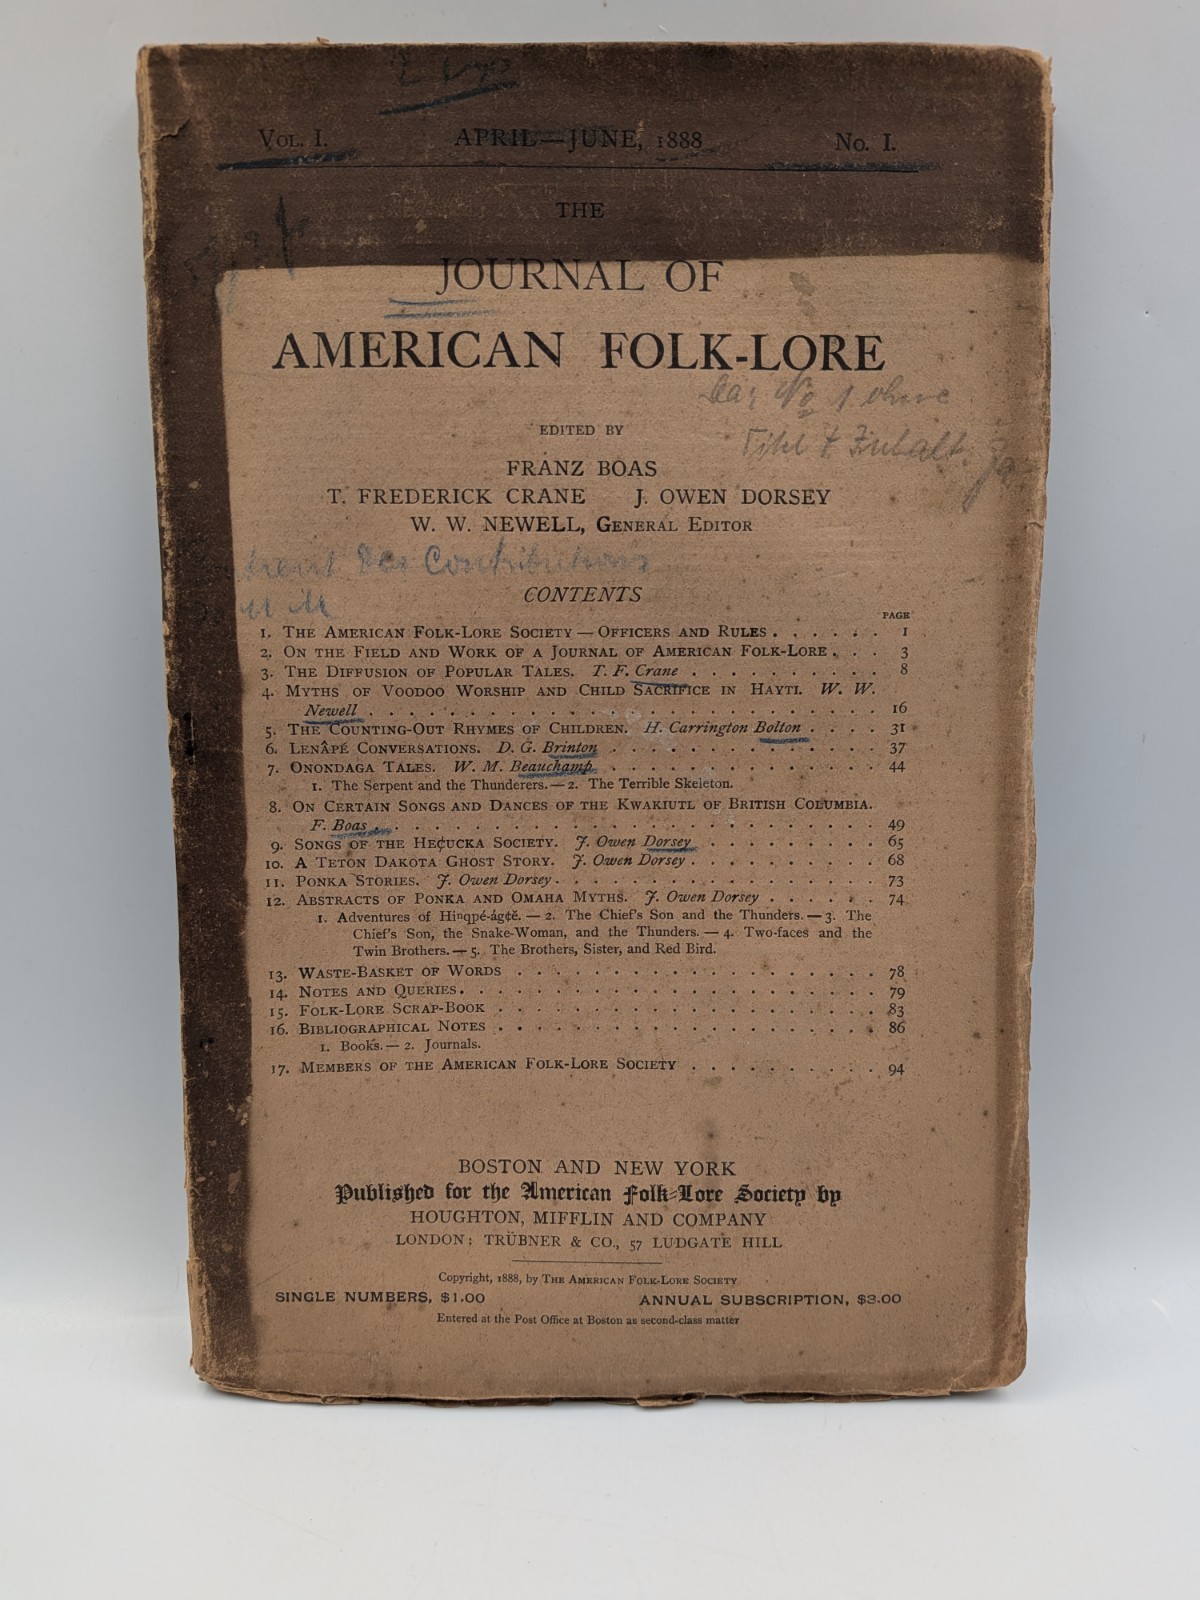 VOL. I. APRIL—JUNE, 1888 No. I.
THE
JOURNAL OF
AMERICAN FOLK-LORE
No 1 ohne
Titel & Inhalt.
EDITED BY
FRANZ BOAS
T. FREDERICK CRANE J. OWEN DORSEY
W. W. NEWELL, GENERAL EDITOR
Contributions
CONTENTS
PAGE
1. THE AMERICAN FOLK-LORE SOCIETY — OFFICERS AND RULES . . . . . . 1
2. ON THE FIELD AND WORK OF A JOURNAL OF AMERICAN FOLK-LORE . . . 3
3. THE DIFFUSION OF POPULAR TALES. T. F. Crane . . . . . . . . . . 8
4. MYTHS OF VOODOO WORSHIP AND CHILD SACRIFICE IN HAYTI. W. W.
Newell . . . . . . . . . . . . . . . . . . . . . . . . . 16
5. THE COUNTING-OUT RHYMES OF CHILDREN. H. Carrington Bolton . . . . 31
6. LENÂPÉ CONVERSATIONS. D. G. Brinton . . . . . . . . . . . . . 37
7. ONONDAGA TALES. W. M. Beauchamp . . . . . . . . . . . . . 44
1. The Serpent and the Thunderers. — 2. The Terrible Skeleton.
8. ON CERTAIN SONGS AND DANCES OF THE KWAKIUTL OF BRITISH COLUMBIA.
F. Boas . . . . . . . . . . . . . . . . . . . . . . . . . 49
9. SONGS OF THE HE¢UCKA SOCIETY. J. Owen Dorsey . . . . . . . . . 65
10. A TETON DAKOTA GHOST STORY. J. Owen Dorsey . . . . . . . . . 68
11. PONKA STORIES. J. Owen Dorsey . . . . . . . . . . . . . . . 73
12. ABSTRACTS OF PONKA AND OMAHA MYTHS. J. Owen Dorsey . . . . . . 74
1. Adventures of Hiⁿqpé-ág¢ĕ. — 2. The Chief's Son and the Thunders. — 3. The
Chief's Son, the Snake-Woman, and the Thunders. — 4. Two-faces and the
Twin Brothers. — 5. The Brothers, Sister, and Red Bird.
13. WASTE-BASKET OF WORDS . . . . . . . . . . . . . . . . . . 78
14. NOTES AND QUERIES . . . . . . . . . . . . . . . . . . . . . 79
15. FOLK-LORE SCRAP-BOOK . . . . . . . . . . . . . . . . . . . 83
16. BIBLIOGRAPHICAL NOTES . . . . . . . . . . . . . . . . . . . 86
1. Books. — 2. Journals.
17. MEMBERS OF THE AMERICAN FOLK-LORE SOCIETY . . . . . . . . . . 94
BOSTON AND NEW YORK
Published for the American Folk-Lore Society by
HOUGHTON, MIFFLIN AND COMPANY
LONDON: TRÜBNER & CO., 57 LUDGATE HILL
Copyright, 1888, by THE AMERICAN FOLK-LORE SOCIETY
SINGLE NUMBERS, $1.00 ANNUAL SUBSCRIPTION, $3.00
Entered at the Post Office at Boston as second-class matter